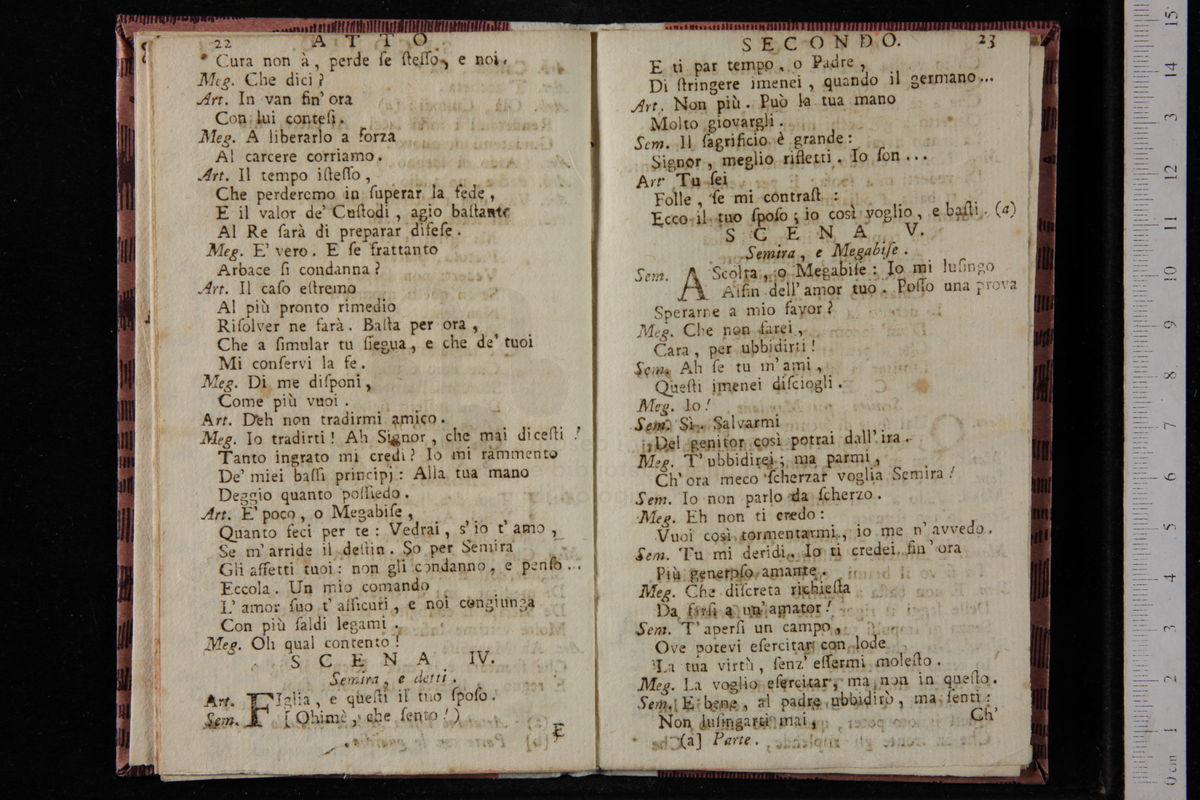 22 ATTO
Cura non à, perde se stesso, e noi.
Meg. Che dici?
Art. In van fin' ora
Con lui contesi.
Meg. A liberarlo a forza
Al carcere corriamo.
Art. Il tempo istesso,
Che perderemo in superar la fede,
E il valor de' Custodi, agio bastante
Al Re sarà di preparar difese.
Meg. E' vero. E se frattanto
Arbace si condanna?
Art. Il caso estremo
Al più pronto rimedio
Risolver ne farà. Basta per ora,
Che a simular tu siegua, e che de' tuoi
Mi conservi la fe.
Meg. Di me disponi,
Come più vuoi.
Art. Deh non tradirmi amico.
Meg. Io tradirti! Ah Signor, che mai dicesti!
Tanto ingrato mi credi? Io mi rammento
De' miei bassi principj: Alla tua mano
Deggio quanto possiedo.
Art. E' poco, o Megabise,
Quanto feci per te: Vedrai, s'io t' amo,
Se m' arride il destin. So per Semira
Gli affetti tuoi: non gli condanno, e penso...
Eccola. Un mio comando
L' amor suo t' assicuri, e noi congiunga
Con più saldi legami.
Meg. Oh qual contento!
SCENA IV.
Semira, e detti.
Art. FIglia, e questi il tuo sposo.
Sem. [Ohimè, che sento!)
E
SECONDO. 23
E ti par tempo, o Padre,
Di stringere imenei, quando il germano...
Art. Non più. Può la tua mano
Molto giovargli.
Sem. Il sagrificio è grande:
Signor, meglio rifletti. Io son...
Art Tu sei
Folle, se mi contrast :
Ecco il tuo sposo; io così voglio, e basti. (a)
SCENA V.
Semira, e Megabise.
Sem. AScolta, o Megabise: Io mi lusingo
Alfin dell' amor tuo. Posso una prova
Sperarne a mio favor?
Meg. Che non farei,
Cara, per ubbidirti!
Sem. Ah se tu m' ami,
Questi imenei disciogli.
Meg. Io!
Sem. Sì. Salvarmi
Del genitor così potrai dall' ira.
Meg. T' ubbidirei; ma parmi,
Ch' ora meco scherzar voglia Semira!
Sem. Io non parlo da scherzo.
Meg. Eh non ti credo:
Vuoi così tormentarmi, io me n' avvedo.
Sem. Tu mi deridi. Io ti credei fin' ora
Più generoso amante.
Meg. Che discreta richiesta
Da farsi a un' amator!
Sem. T' apersi un campo,
Ove potevi esercitar con lode
La tua virtù, senz' essermi molesto.
Meg. La voglio esercitar, ma non in questo.
Sem. E bene, al padre ubbidirò, ma senti:
Non lusingarti mai,
Ch'
(a] Parte.
0 cm 1 2 3 4 5 6 7 8 9 10 11 12 13 14 15